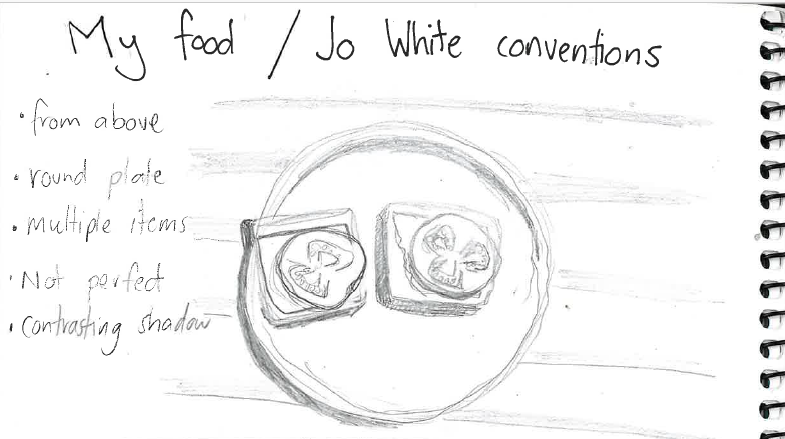 My food / Jo White conventions
• from above
• round plate
• Multiple items
• Not perfect
• Contrasting shadow